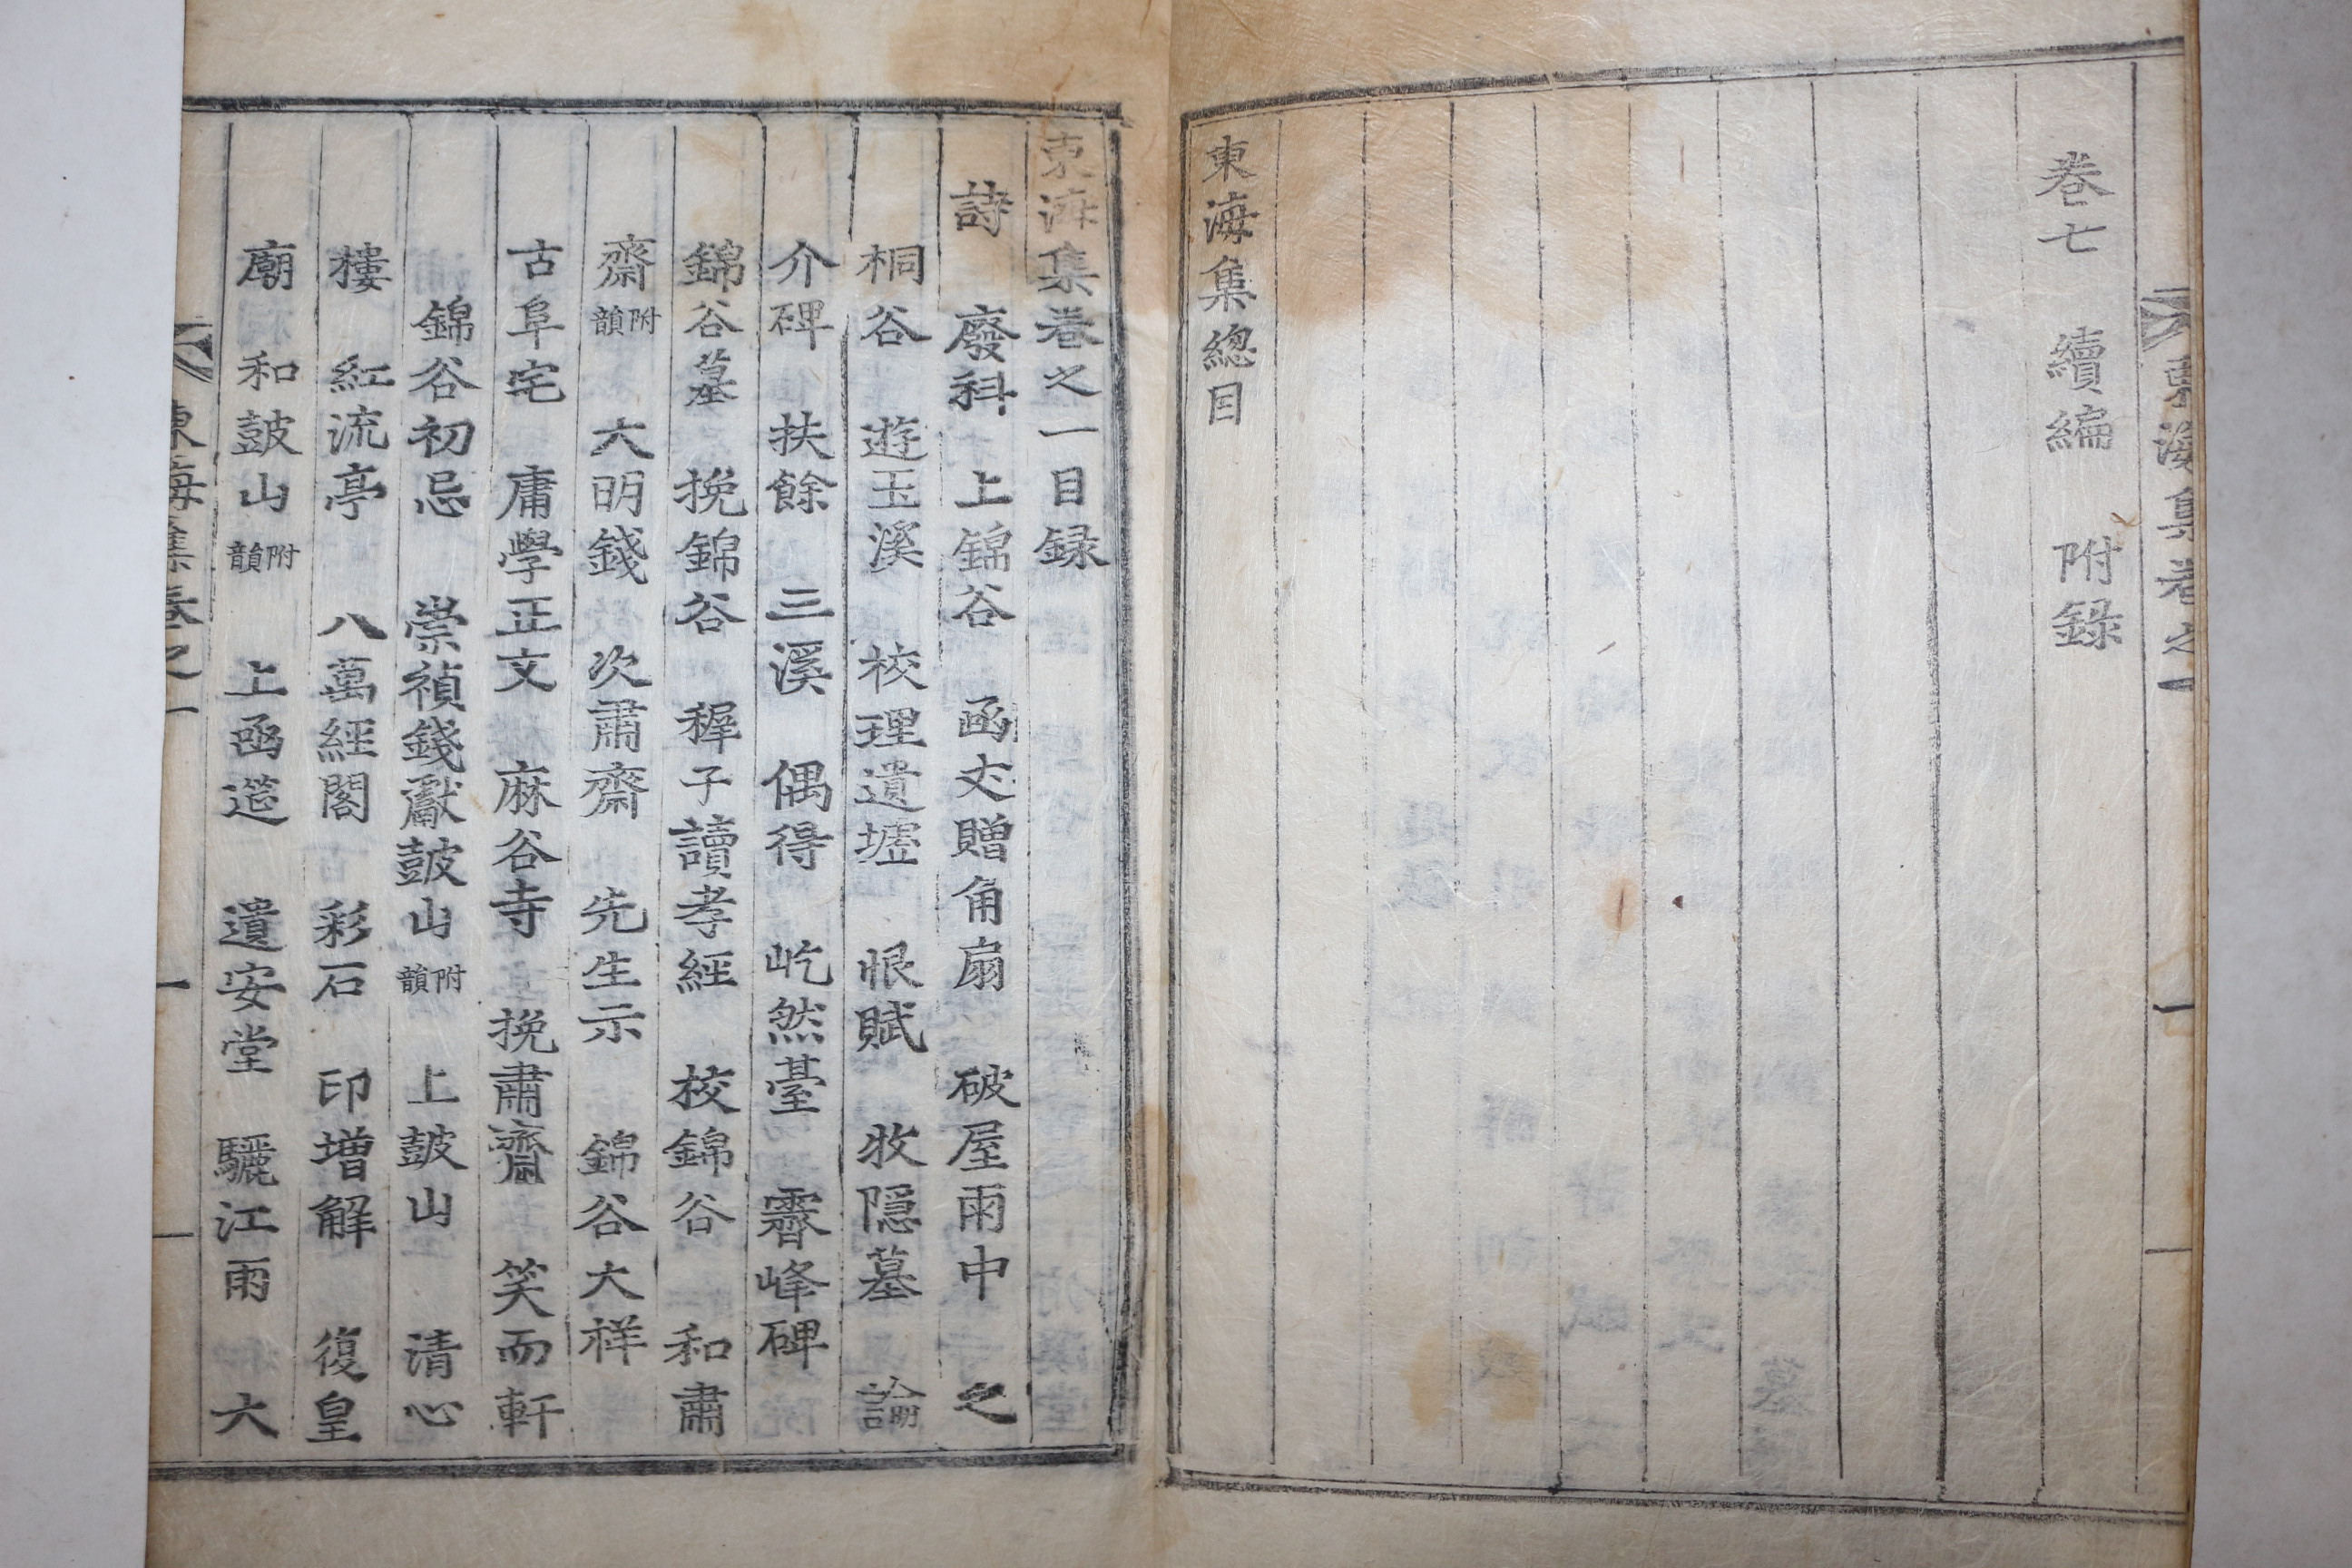 卷七 續編 附錄
東海集總目
東海集卷之一目録
詩 廢科 上錦谷 函丈贈角扇 破屋雨中 之
桐谷 遊玉溪 校理遺墟 恨賦 牧隱墓 論
介碑 扶餘 三溪 偶得 屹然臺 霽峰碑
錦谷墓 挽錦谷 稺子讀孝經 校錦谷 和肅
齋附韻 大明錢 次肅齋 先生示 錦谷大祥
古阜宅 庸學正文 麻谷寺 挽肅齋 笑而軒
錦谷初忌 崇禎錢獻皷山附韻 上皷山 清心
樓 紅流亭 八萬經閣 彩石 印增解 復皇
廟 和皷山附韻 上函筵 遺安堂 驪江雨 六
東海集卷之一 一